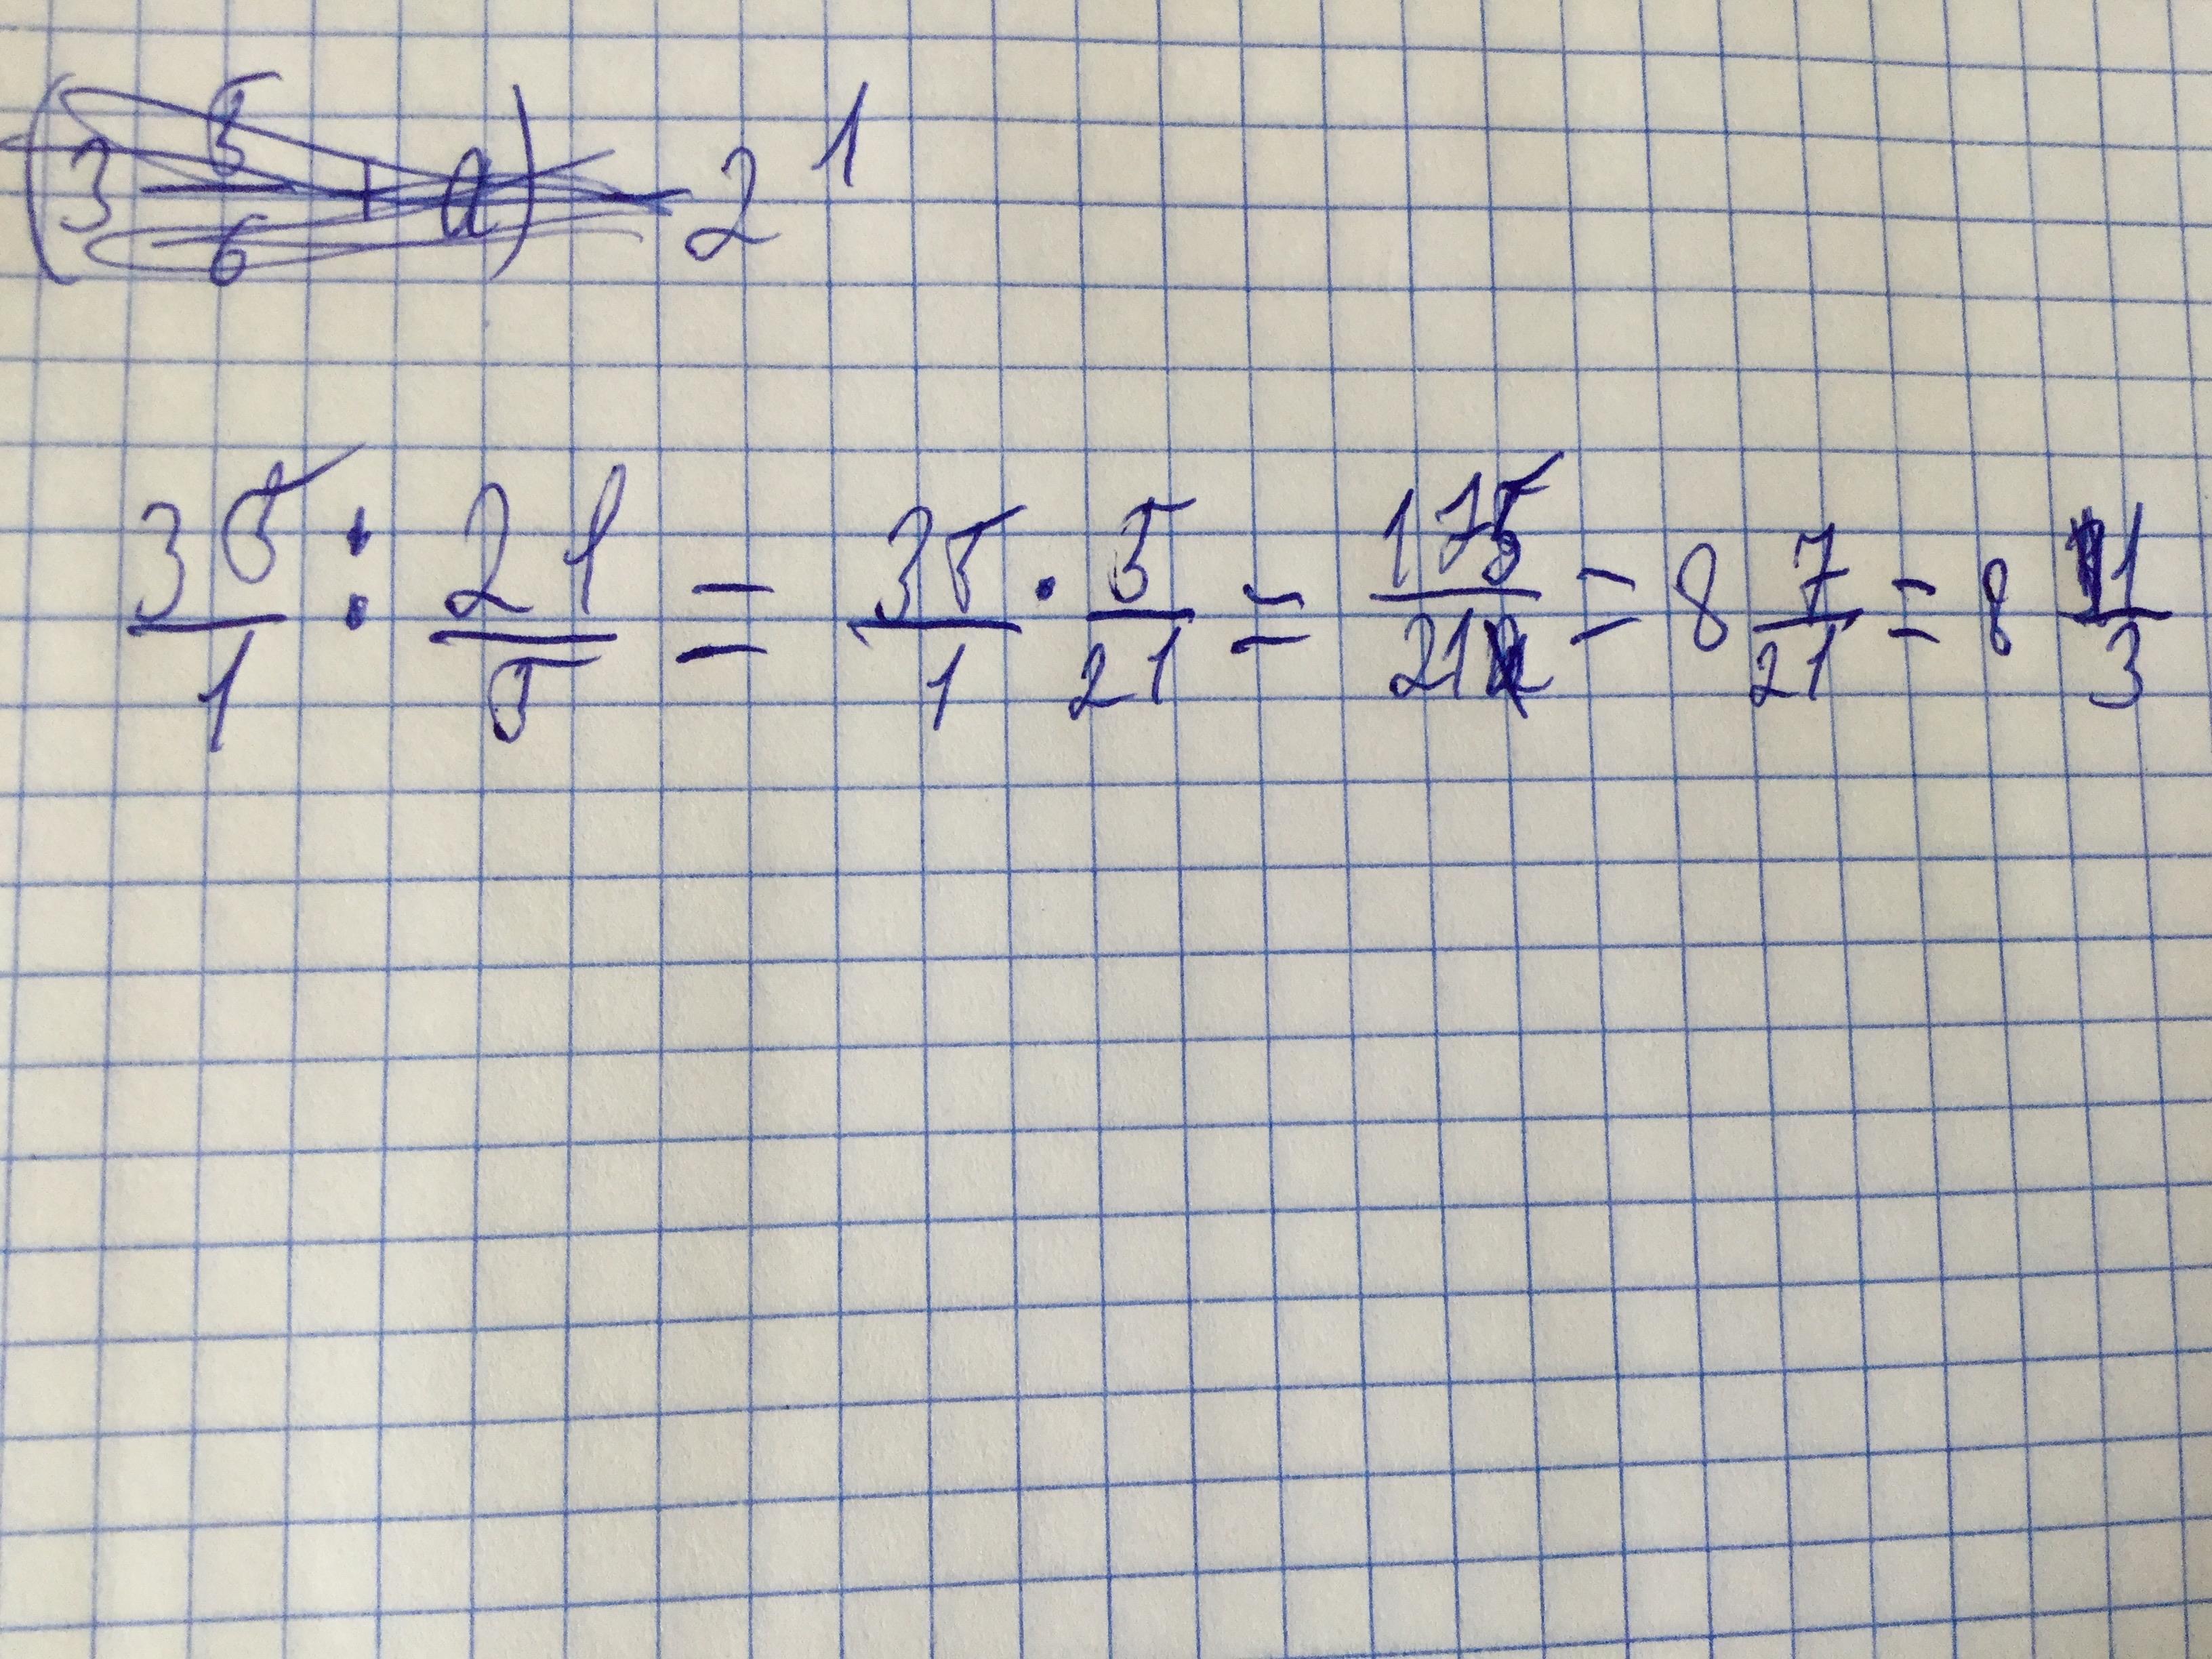 (3 5/6 + a) - 2 1
35/1 : 21/5 = 35/1 · 5/21 = 175/21 = 8 7/21 = 8 1/3